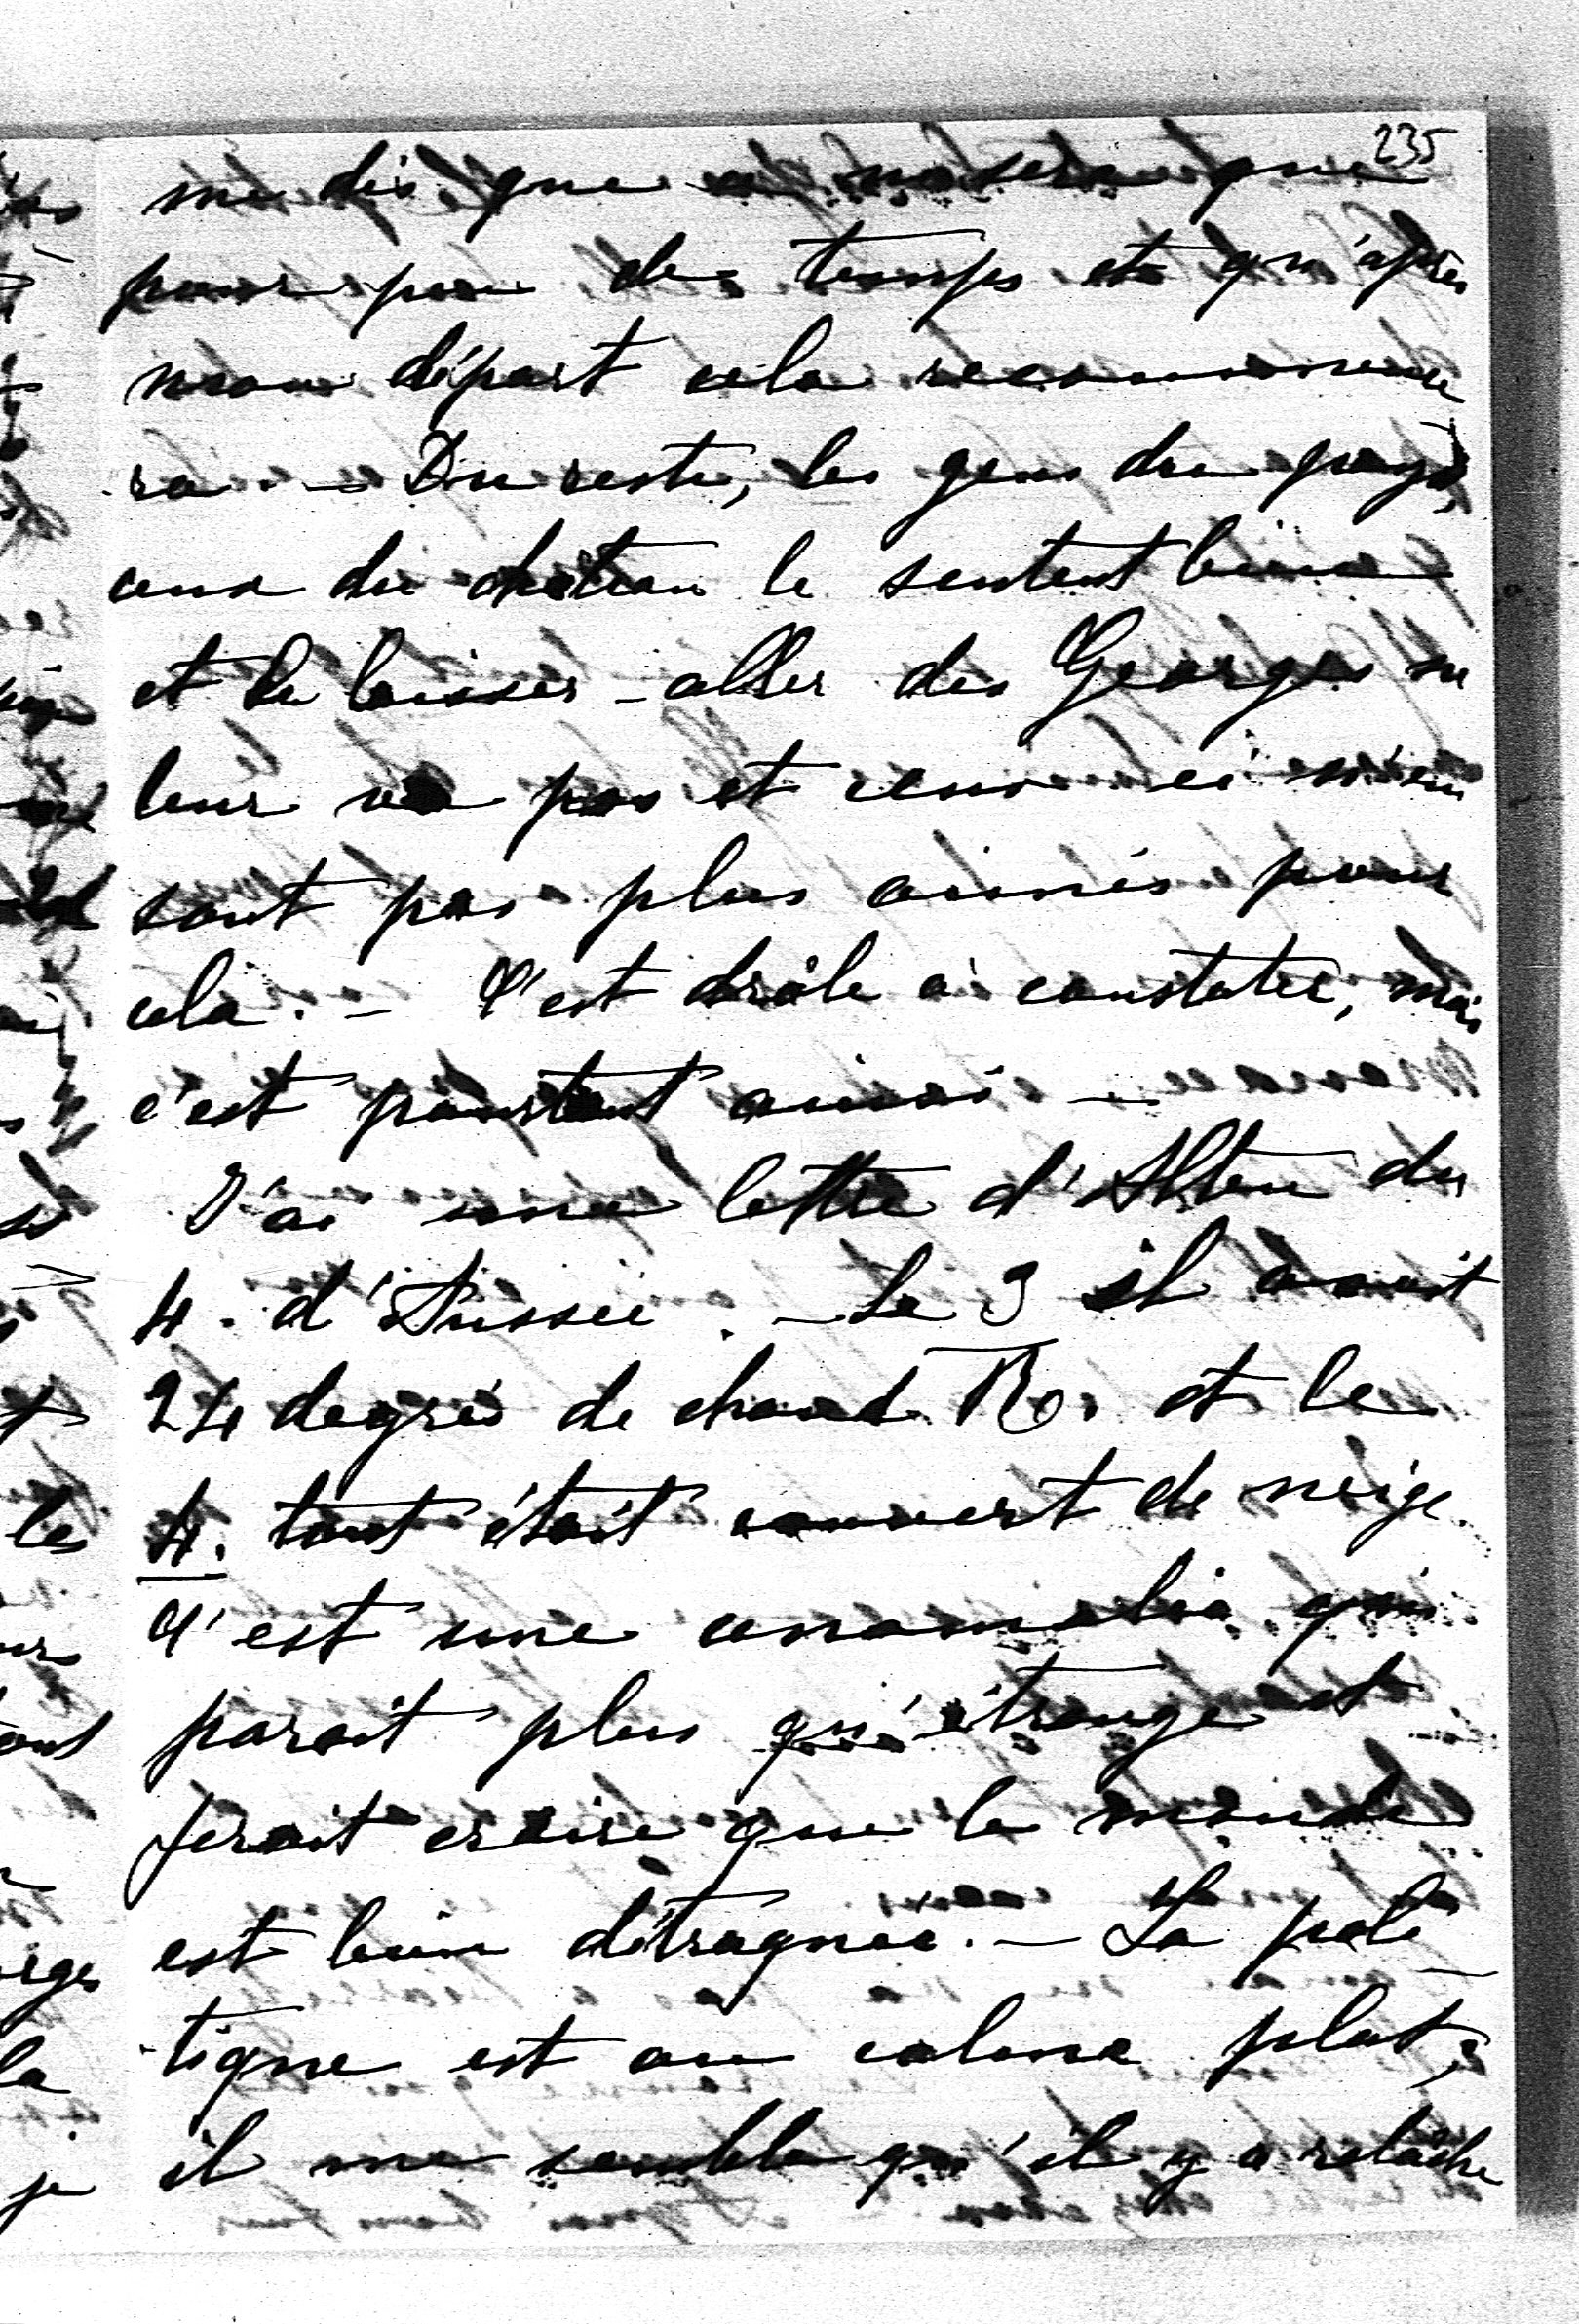 235
me dis que ce ne sera que
pour peu de temps et qu'après
mon départ cela recommence
ra. — Du reste, les gens du pays,
ceux du château le sentent bien
et le laisser-aller des Georges ne
leur va pas et ceux-ci n'en
sont pas plus aimés pour
cela. — C'est drôle à constater, mais
c'est pourtant ainsi —
J'ai une lettre d'Alten du
4. d'Aussee. — Le 3 il avait
24 degrés de chaud Ro. et le
4. tout était couvert de neige
C'est une anomalie qui
parait plus qu'étrange et
ferait croire que le monde
est bien détraqué. — La poli-
tique est au calme plat;
il me semble qu'il y a relâche